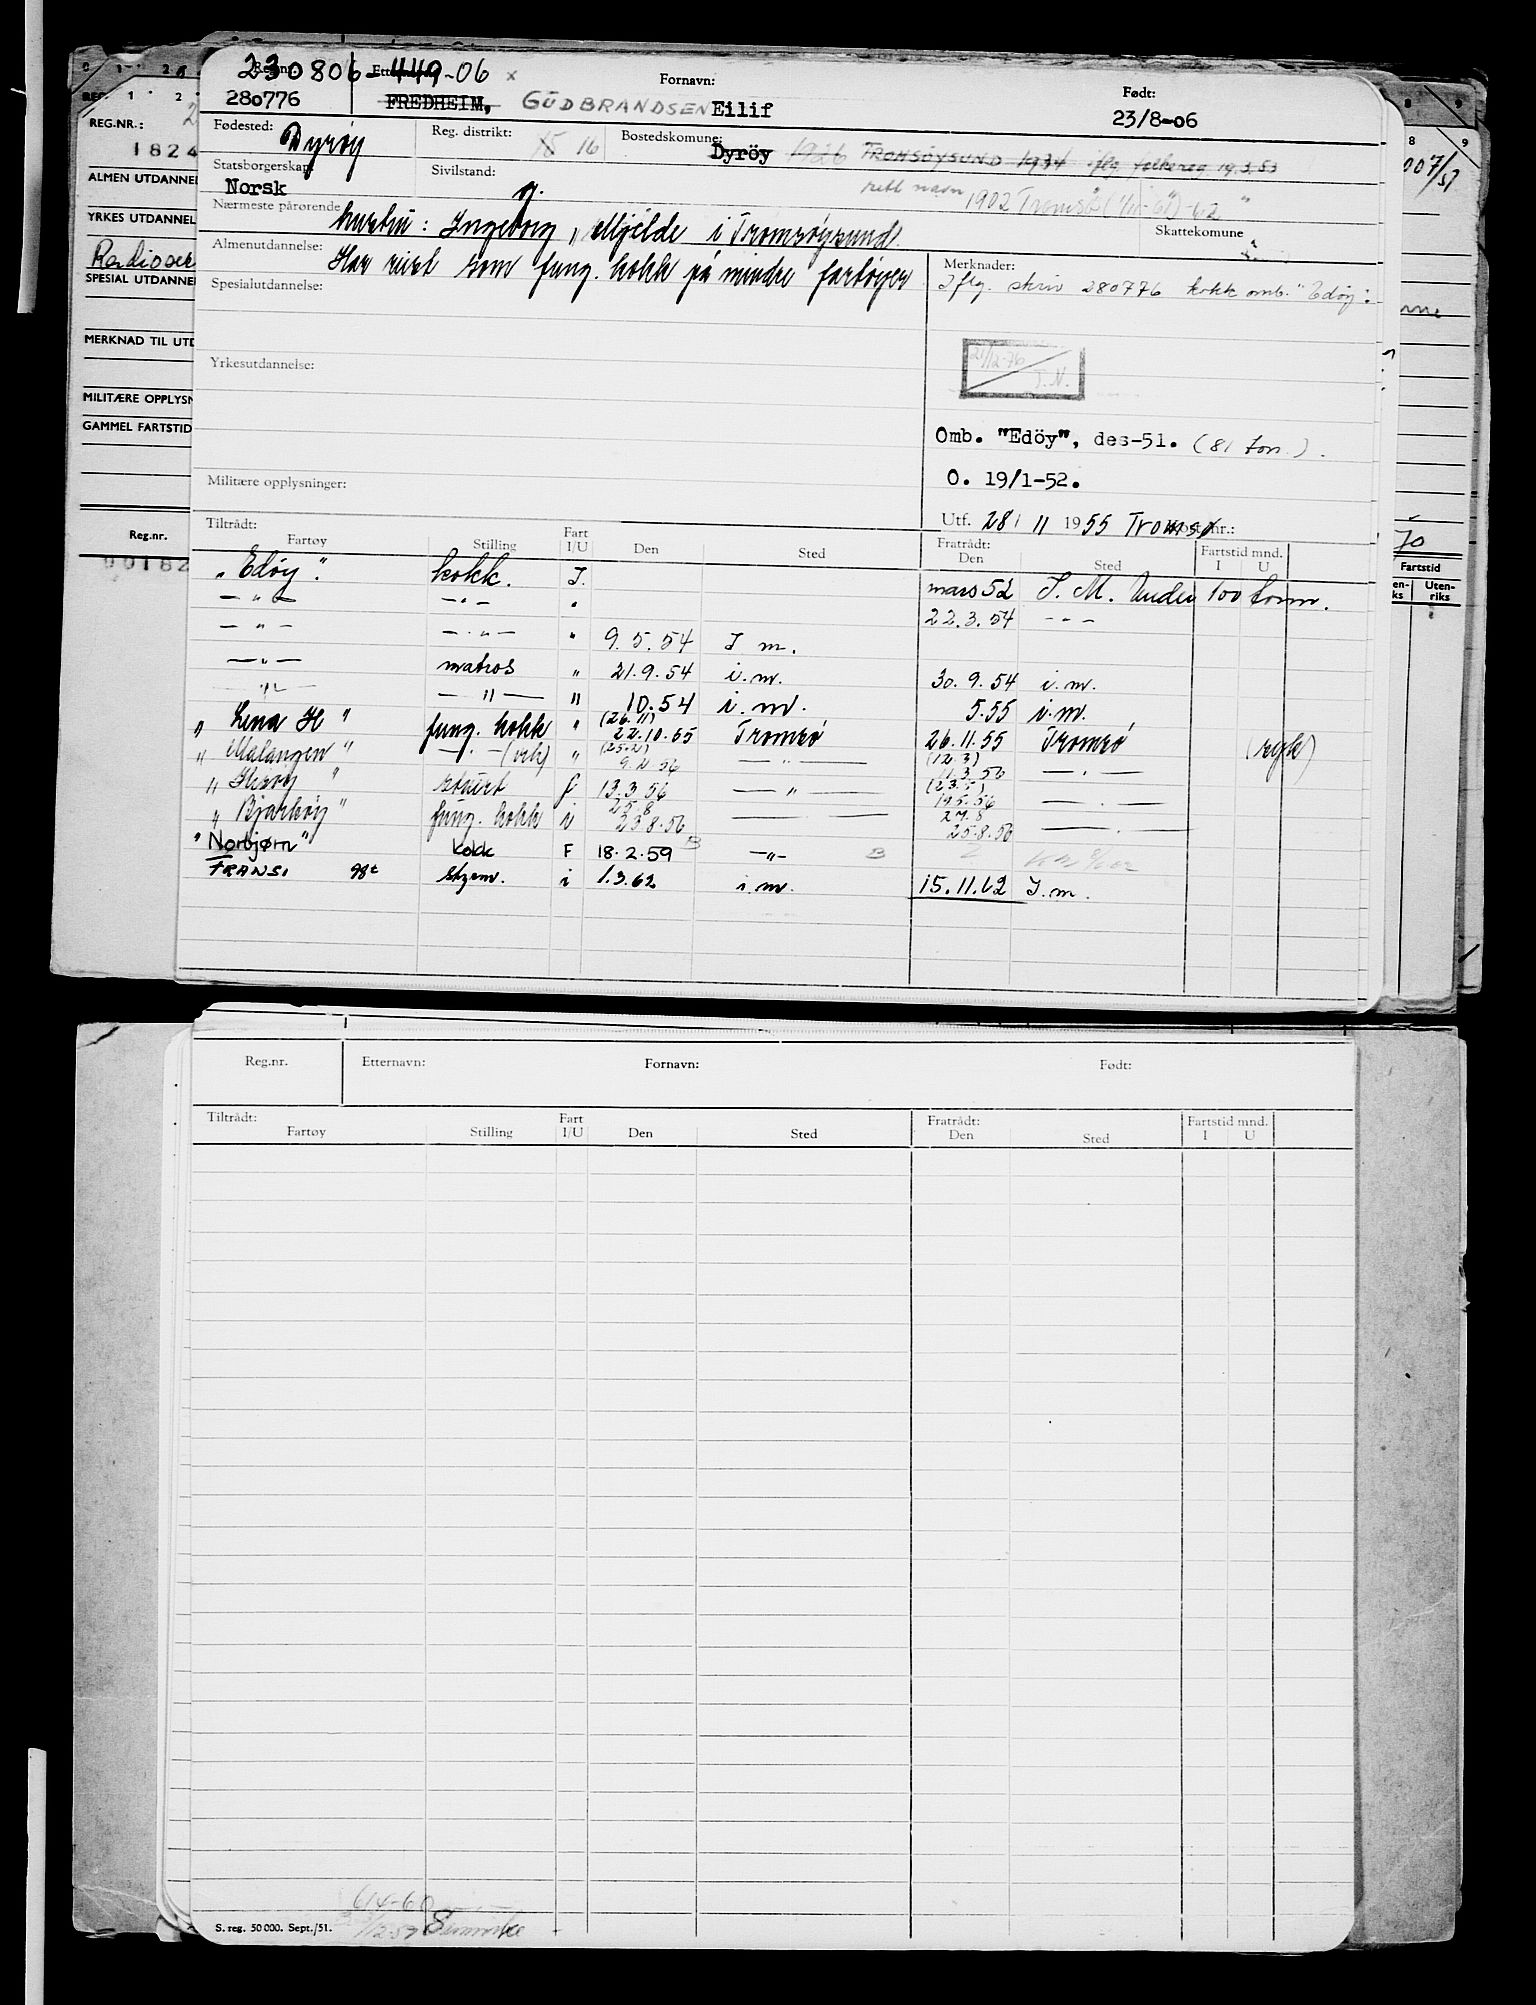 230806-449-06 x
Regnr. Etternavn: Fornavn: Født:
280776 FREDHEIM, GUDBRANDSEN Eilif 23/8-06
Fødested: Dyröy Reg. distrikt: 15 16 Bostedskomune: Dyröy 1926 TROMSÖYSUND 1934 iflg. folkereg 19.3.53
Statsborgerskap: Norsk Sivilstand: g. rett navn 1902 Tromsö
Nærmeste pårørende hustru: Ingeborg, Mjelde i Tromsöysund. Skattekomune
Almenutdannelse: Har reist som fung. kokk på mindre fartöyer Merknader:
Iflg. skriv 280776 kokk omb. "Edöy".
Spesialutdannelse:
21/12-76
T.N.
Yrkesutdannelse:
Omb. "Edöy", des-51. (81 tonn.).
O. 19/1-52.
Militære opplysninger:
Utf. 28/11 1955 Tromsø
Tiltrådt: Fratrådt: Fartstid mnd.
Fartøy Stilling Fart I/U Den Sted Den Sted I U
"Edöy". kokk. I. mars 52 I. M. Under 100 tonn.
—"— —"— " 22.3.54 —"—
—"— —"— " 9.5.54 I m.
—"— matros " 21.9.54 i.m. 30.9.54 i.m.
—"— —"— " 10.54 i.m. 5.55 i.m.
"Lena H" fung. kokk " (26.11) 22.10.55 Tromsö 26.11.55 Tromsö (syk)
"Malangen" —"— " (25.2) 9.2.56 —"— (12.3) 11.3.56 —"—
"Hisöy" stuert f 13.3.56 —"— (23.5) 19.5.56 —"—
"Bjarköy" fung. kokk i 25.8 23.8.56 —"— 27.8 25.8.56 —"—
"Norbjørn" kokk F 18.2.59 B —"— B
FRANSI 98t skzem. i 1.3.62 i.m. 15.11.62 I.m.
REG.NR.: 2
1824
ALMEN UTDANNEL
YRKES UTDANNEL
Radioser
SPESIAL UTDANNE
MERKNAD TIL UTD
MILITÆRE OPPLYSN
GAMMEL FARTSTID
Reg.nr.
00182
007/51
70
Fartstid
en-ks Uten-riks
Reg.nr. Etternavn: Fornavn: Født:
Tiltrådt: Fratrådt: Fartstid mnd.
Fartøy Stilling Fart I/U Den Sted Den Sted I U
614-60
S. reg. 50 000. Sept./51.